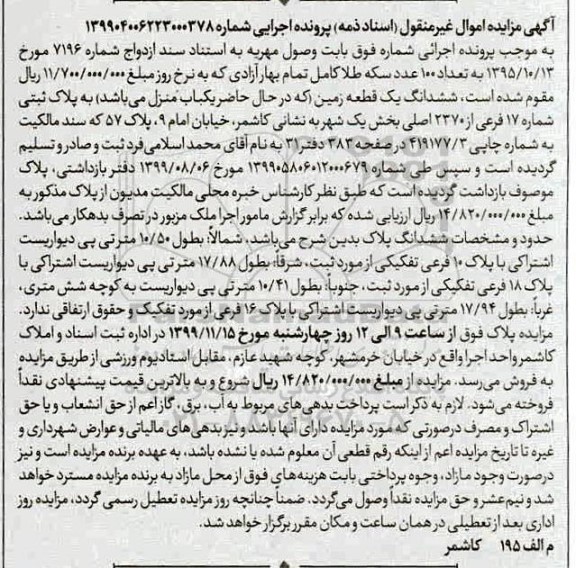 آگهی مزایده اموال غیرمنقول (اسناد ذمه) پرونده اجرایی شماره ۱۳۹۹۰۴۰۰۶۲۲۳۰۰۰۳۷۸
به موجب پرونده اجرائی شماره فوق بابت وصول مهریه به استناد سند ازدواج شماره ۷۱۹۶ مورخ
۱۳۹۵/۱۰/۱۳ به تعداد ۱۰۰ عدد سکه طلا کامل تمام بهار آزادی که به نرخ روز مبلغ ۱۱/۷۰۰/۰۰۰/۰۰۰ ریال
مقوم شده است، ششدانگ یک قطعه زمین (که در حال حاضر یکباب منزل می‌باشد) به پلاک ثبتی
شماره ۱۷ فرعی از ۲۳۷۰ اصلی بخش یک شهر به نشانی کاشمر، خیابان امام ۹، پلاک ۵۷ که سند مالکیت
به شماره چاپی ۴۱۹۱۷۷/۳ در صفحه ۳۸۳ دفتر ۳۱ به نام آقای محمد اسلامی فرد ثبت و صادر و تسلیم
گردیده است و سپس طی شماره ۱۳۹۹۰۵۸۰۶۰۱۲۰۰۰۶۷۹ مورخ ۱۳۹۹/۰۸/۰۶ دفتر بازداشتی، پلاک
موصوف بازداشت گردیده است که طبق نظر کارشناس خبره محلی مالکیت مدیون از پلاک مذکور به
مبلغ ۱۴/۸۲۰/۰۰۰/۰۰۰ ریال ارزیابی شده که برابر گزارش مامور اجرا ملک مزبور در تصرف بدهکار می‌باشد.
حدود و مشخصات ششدانگ پلاک بدین شرح می‌باشد، شمالاً: بطول ۱۰/۵۰ متر تی پی دیواریست
اشتراکی با پلاک ۱۰ فرعی تفکیکی از مورد ثبت، شرقاً: بطول ۱۷/۸۸ متر تی پی دیواریست اشتراکی با
پلاک ۱۸ فرعی تفکیکی از مورد ثبت، جنوباً: بطول ۱۰/۴۱ متر تی پی دیواریست به کوچه شش متری،
غرباً: بطول ۱۷/۹۴ متر تی پی دیواریست اشتراکی با پلاک ۱۶ فرعی از مورد تفکیک و حقوق ارتفاقی ندارد.
مزایده پلاک فوق از ساعت ۹ الی ۱۲ روز چهارشنبه مورخ ۱۳۹۹/۱۱/۱۵ در اداره ثبت اسناد و املاک
کاشمر واحد اجرا واقع در خیابان خرمشهر، کوچه شهید عازم، مقابل استادیوم ورزشی از طریق مزایده
به فروش می‌رسد. مزایده از مبلغ ۱۴/۸۲۰/۰۰۰/۰۰۰ ریال شروع و به بالاترین قیمت پیشنهادی نقداً
فروخته می‌شود. لازم به ذکر است پرداخت بدهی‌های مربوط به آب، برق، گاز اعم از حق انشعاب و یا حق
اشتراک و مصرف درصورتی که مورد مزایده دارای آنها باشد و نیز بدهی های مالیاتی و عوارض شهرداری و
غیره تا تاریخ مزایده اعم از اینکه رقم قطعی آن معلوم شده یا نشده باشد، به عهده برنده مزایده است و نیز
درصورت وجود مازاد، وجوه پرداختی بابت هزینه‌های فوق از محل مازاد به برنده مزایده مسترد خواهد
شد و نیم عشر و حق مزایده نقداً وصول می‌گردد. ضمناً چنانچه روز مزایده تعطیل رسمی گردد، مزایده روز
اداری بعد از تعطیلی در همان ساعت و مکان مقرر برگزار خواهد شد.
م الف ۱۹۵ کاشمر